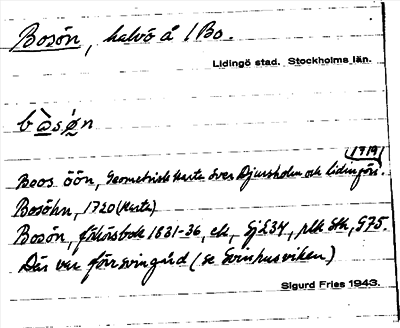 Bosön, halvö å 1 Bo.
Lidingö stad. Stockholms län.
bòsǿn
1719
Boos öön, Geometrisk karta över Djursholm och Lidingön.
Bosöhn, 1720 (Karta)
Bosön, förhörsbok 1831-36, ek, Ej 234, plk Sth, 975.
Där var förr svingård (se Svinhusviken)
Sigurd Fries 1943.